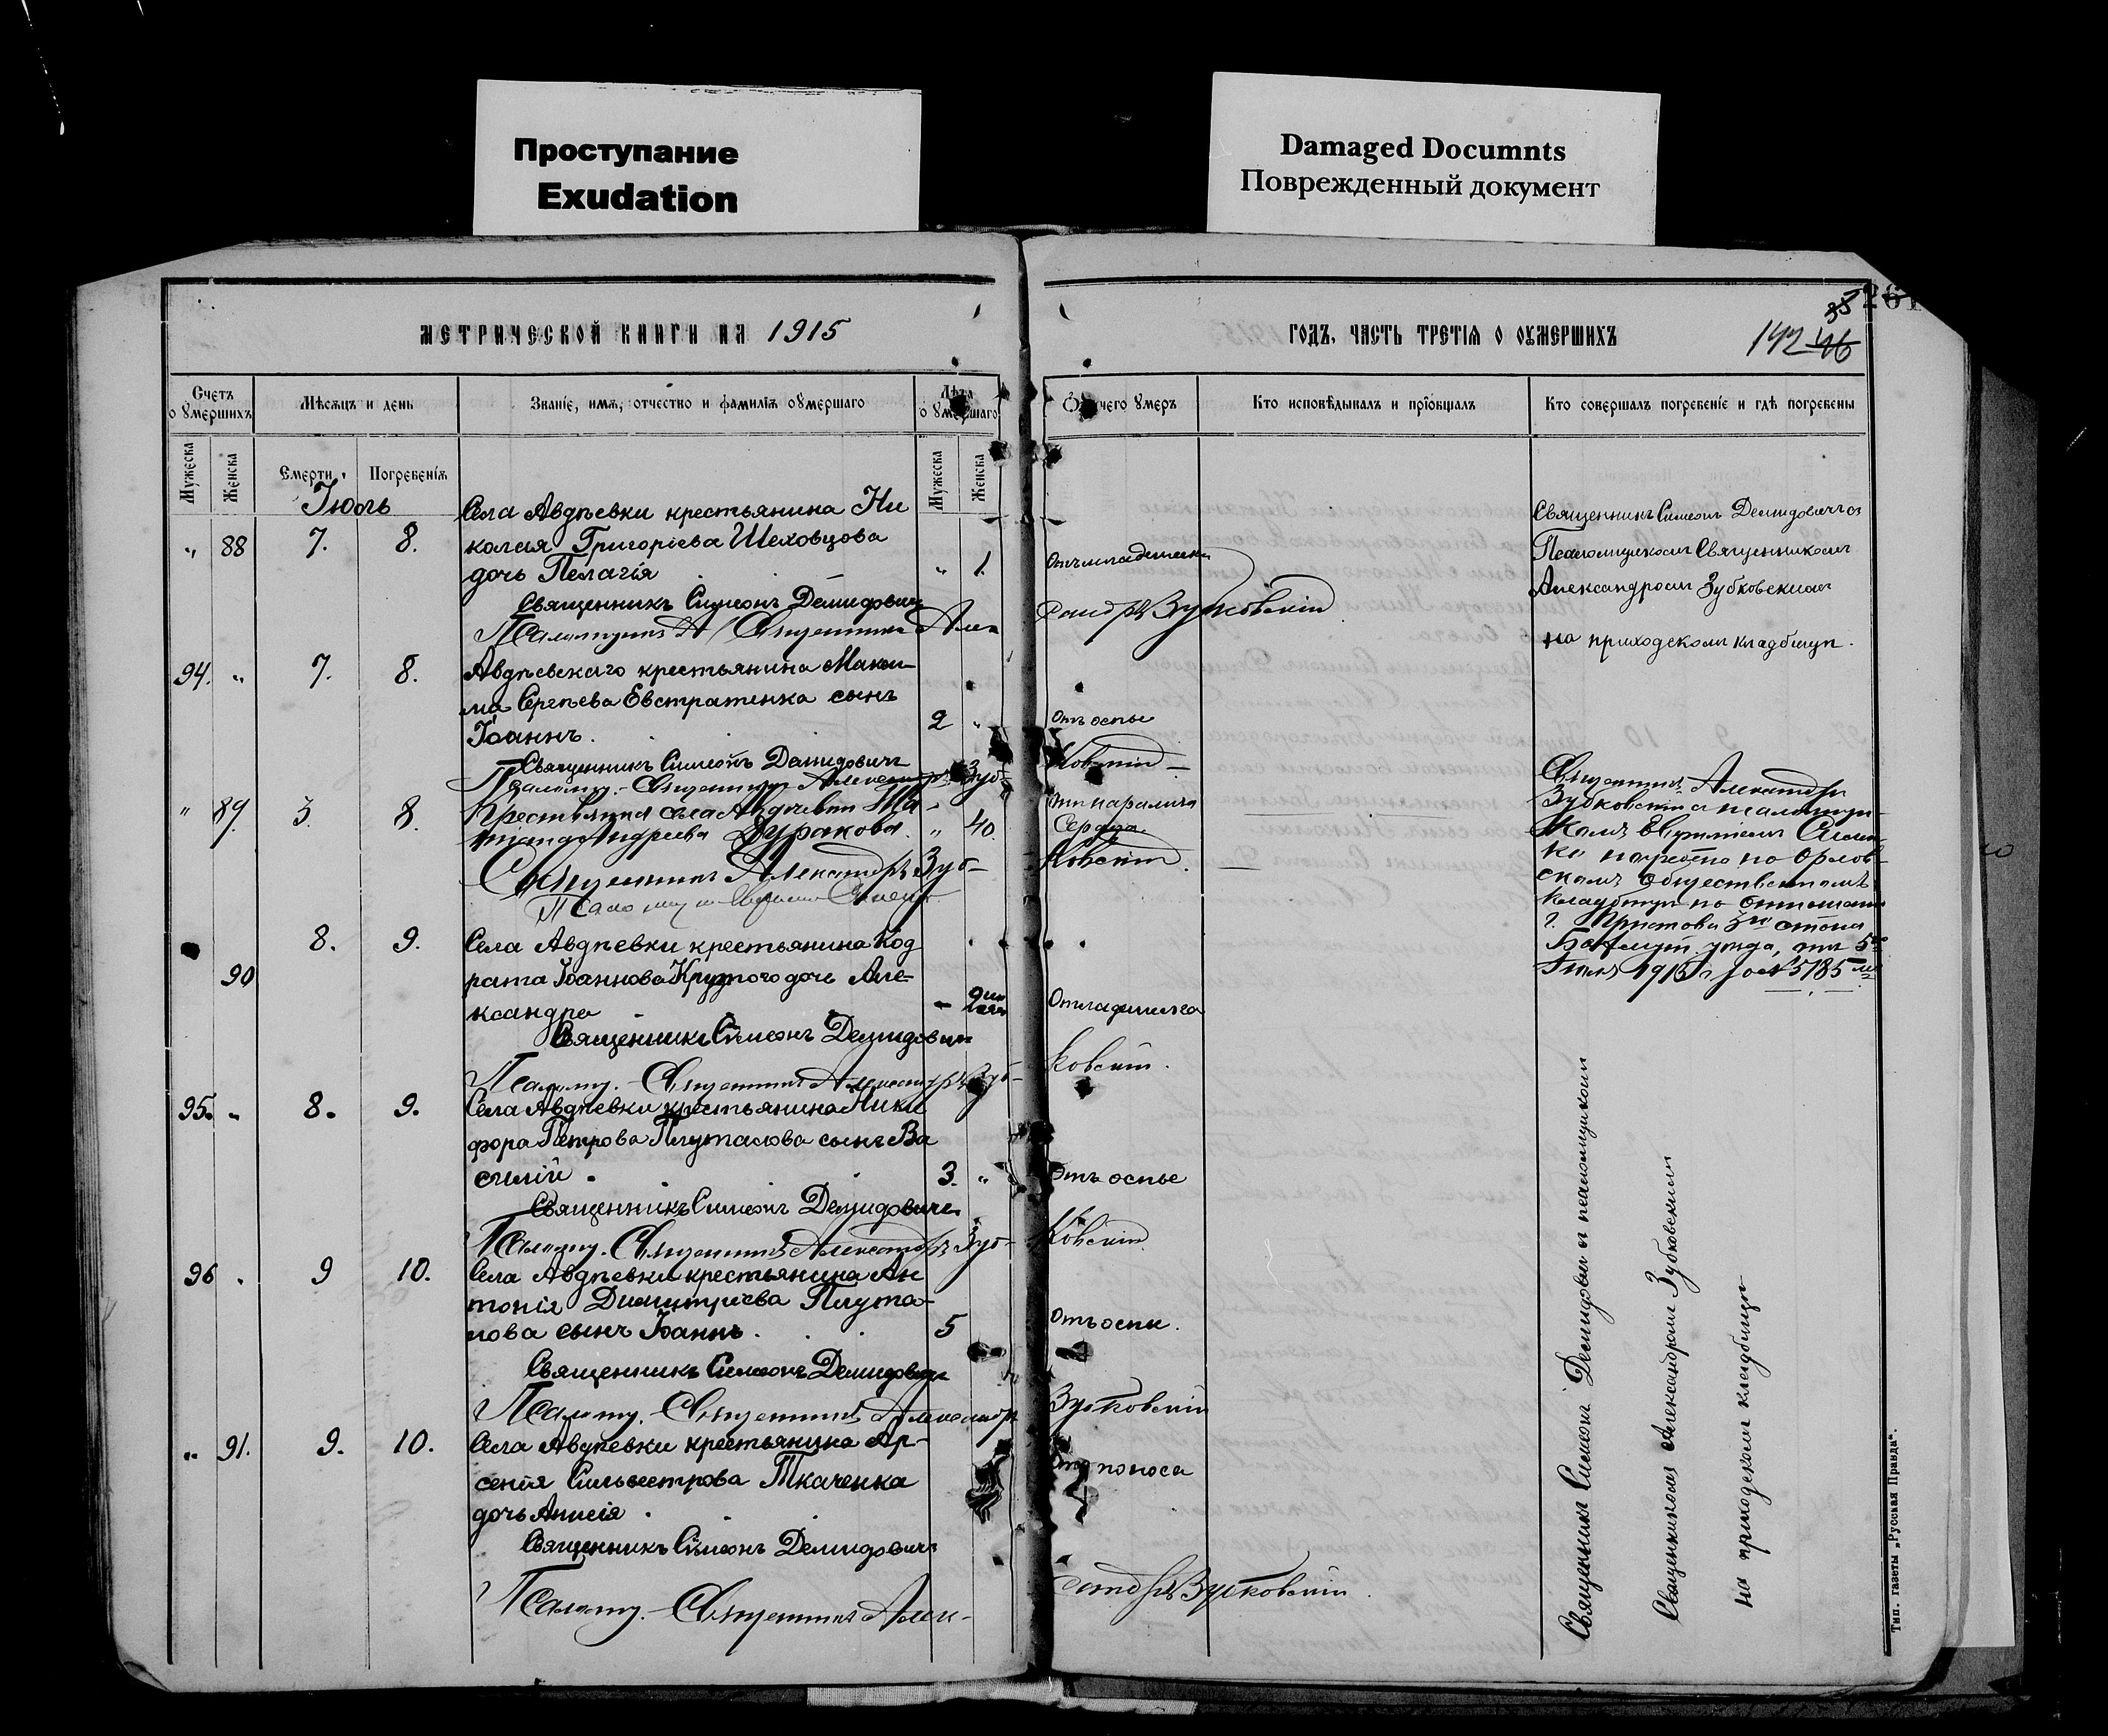 Проступание
Exudation
Damaged Documnts
Поврежденный документ
МЕТРИЧЕСКОЙ КНИГИ НА 1915
Счетъ оумершихъ
Мѣсяцъ и день
Званіе, имя, отчество и фамилія оумершаго
Лѣта оумершаго
Мужеска
Женска
Смерти
Погребенія
Мужеска
Женска
Іюль
Села Авдѣевки крестьянина Ни
„ 88 7. 8. колая Григоріева Шеховцова
дочь Пелагія „ 1.
Священникъ Симеонъ Демидовичъ
Псаломщикъ Священникъ Алек
94. „ 7. 8. Авдѣевскаго крестьянина Макси
ма Сергѣева Евстратенка сынъ
Іоаннъ. 2 „
Священникъ Симеонъ Демидовичъ
Псаломщ. Священникъ Александръ Зуб-
„ 89. 3. 8. Крестьянка села Авдѣевки Та-
тіана Андреева Дуракова. „ 40.
Священникъ Александръ Зуб-
8. 9. Села Авдѣевки крестьянина Код
90 рата Іоаннова Крутого дочь Але-
ксандра
Священникъ Симеонъ Демидовичъ
Псаломщ. Священникъ Александръ Зуб-
95. „ 8. 9. Села Авдѣевки крестьянина Ники
фора Петрова Плуталова сынъ Ва
силій. 3. „
Священникъ Симеонъ Демидовичъ
Псаломщ. Священникъ Александръ Зуб-
96 „ 9 10. Села Авдѣевки крестьянина Ан
тонія Димитріева Плута-
лова сынъ Іоаннъ. 5
Священникъ Симеонъ Демидовичъ
Псаломщ. Священникъ Александръ
„ 91. 9. 10. Села Авдѣевки крестьянина Ар-
сенія Сильвестрова Ткаченка
дочь Анисія.
Священникъ Симеонъ Демидовичъ
Псаломщ. Священникъ Алек-
ГОДЪ, ЧАСТЬ ТРЕТІЯ О ОУМЕРШИХЪ
35
261
142 46
Отъ чего умеръ
Кто исповѣдывалъ и пріобщалъ
Кто совершалъ погребеніе и гдѣ погребены
Отъ младенческ
сандръ Зубковскій
Отъ оспы
ковскій
отъ паралича
сердца
ковскій
От младенчества
ковскій.
Отъ оспы
ковскій
Отъ оспы.
Зубковскій
Отъ поноса
сандръ Зубковскій.
Священникъ Симеонъ Демидовичъ съ
Псаломщикомъ Священникомъ
Александромъ Зубковскимъ
на приходскомъ кладбищѣ.
Священникъ Александръ
Зубковскій съ псаломщи-
комъ
погребена на Орлов-
скомъ общественномъ
кладбищѣ по отношенію
г. Пристава 3го стана
Бахмут. уѣзда, отъ 5го
Іюля 1915 г. за № 5185
Священникъ Симеонъ Демидовичъ съ псаломщикомъ
Священникомъ Александромъ Зубковскимъ
на приходскомъ кладбищѣ
Тип. газеты „Русская Правда“.